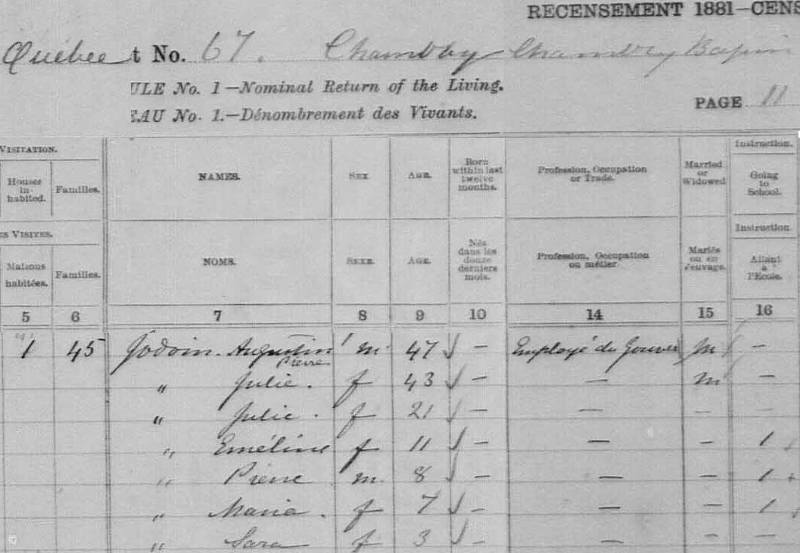 RECENSEMENT 1881—CENS
Québec t No. 67. Chambly Chambly Bassin
ULE No. 1—Nominal Return of the Living.
EAU No. 1.—Dénombrement des Vivants.
PAGE 11
VISITATION. NAMES. SEX AGE. Born within last twelve months. Profession, Occupation or Trade. Married or Widowed Instruction.
Houses in-habited. Families. Going to School.
ES VISITES. NOMS. SEXE. AGE. Nés dans les douze derniers mois. Profession, Occupation ou métier. Mariés ou en veuvage. Instruction
Maisons habitées. Families. Allant à l'Ecole.
5 6 7 8 9 10 14 15 16
1 45 Jodoin. Augustin m 47 — Employé du Gouver m —
Pierre
„ Julie. f 43 — — m
„ Julie. f 21 — — — —
„ Eméline f 11 — — — 1
„ Pierre m. 8 — — — 1
„ Maria. f 7 — — — 1
„ Sara f 3 — — — —